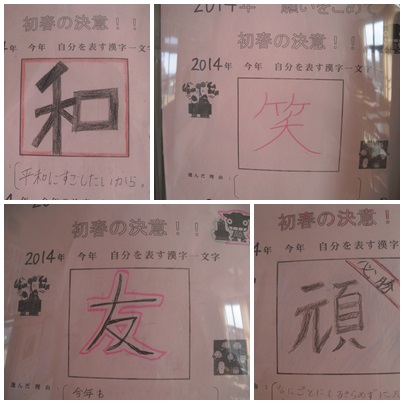 初春の決意!!
年 今年 自分を表す漢字一文字
和
平和にすごしたいから。
2014年
初春の決意!!
2014年 今年 自分を表す漢字一文字
笑
選んだ理由:
初春の決意!!
2014年 今年 自分を表す漢字一文字
友
選んだ理由:
今年も
初春の決意!
今年 自分を表す漢字一文
必勝
頑